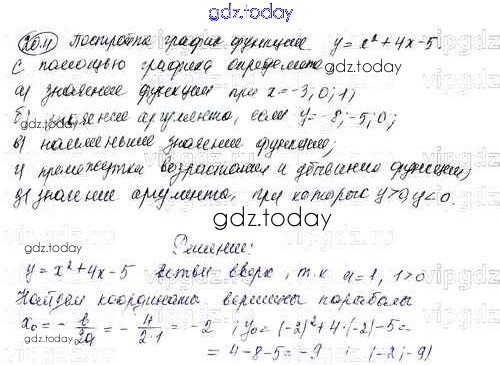 gdz.today
20.4 Постройте график функции y = x² + 4x - 5.
С помощью графика определите
gdz.today
а) значение функции при x = -3; 0; 1;
б) значение аргумента, если y = -8; -5; 0;
в) наименьшее значение функции;
г) промежутки возрастания и убывания функции;
gdz.today
д) значение аргумента, при которого y > 0, y < 0.
gdz.today
Решение:
gdz.today
y = x² + 4x - 5 ветви вверх, т.к a = 1, 1 > 0
Найдем координаты вершины параболы
x₀ = - b/2a = - 4/2·1 = -2 ; y₀ = (-2)² + 4·(-2) - 5 =
= 4 - 8 - 5 = -9 ; (-2; -9)
gdz.today